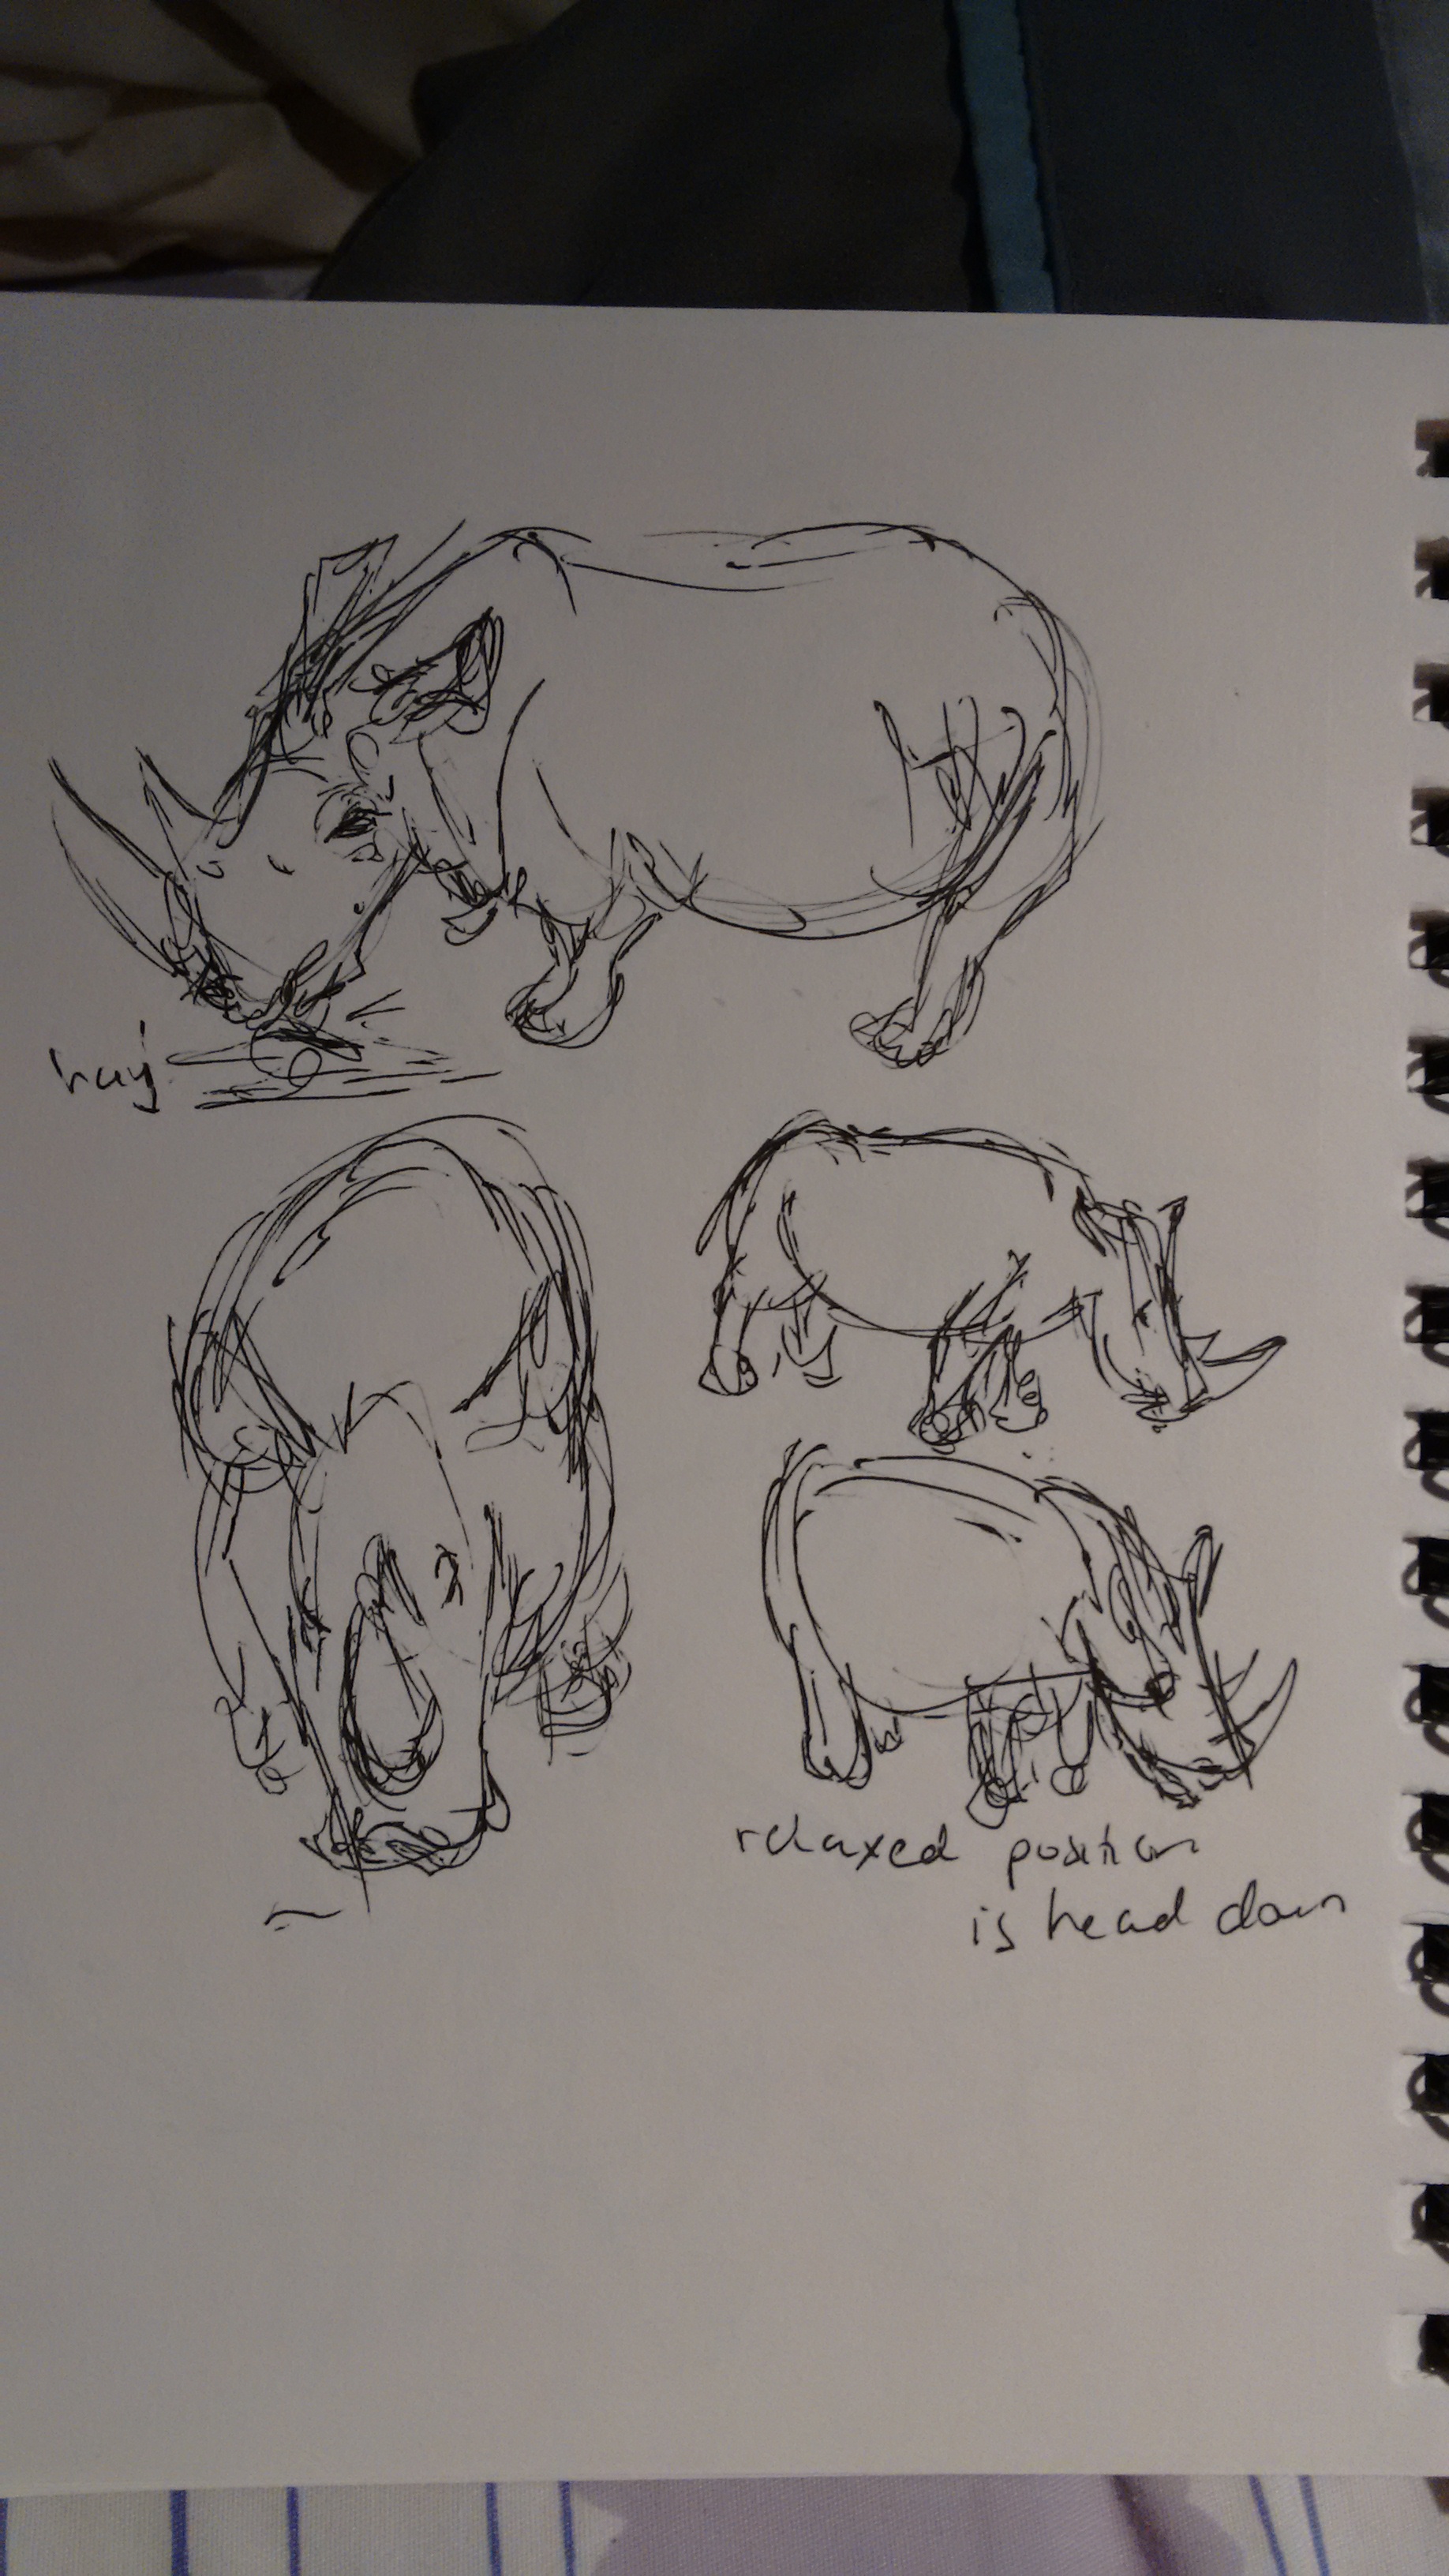 hay
relaxed position
is head down